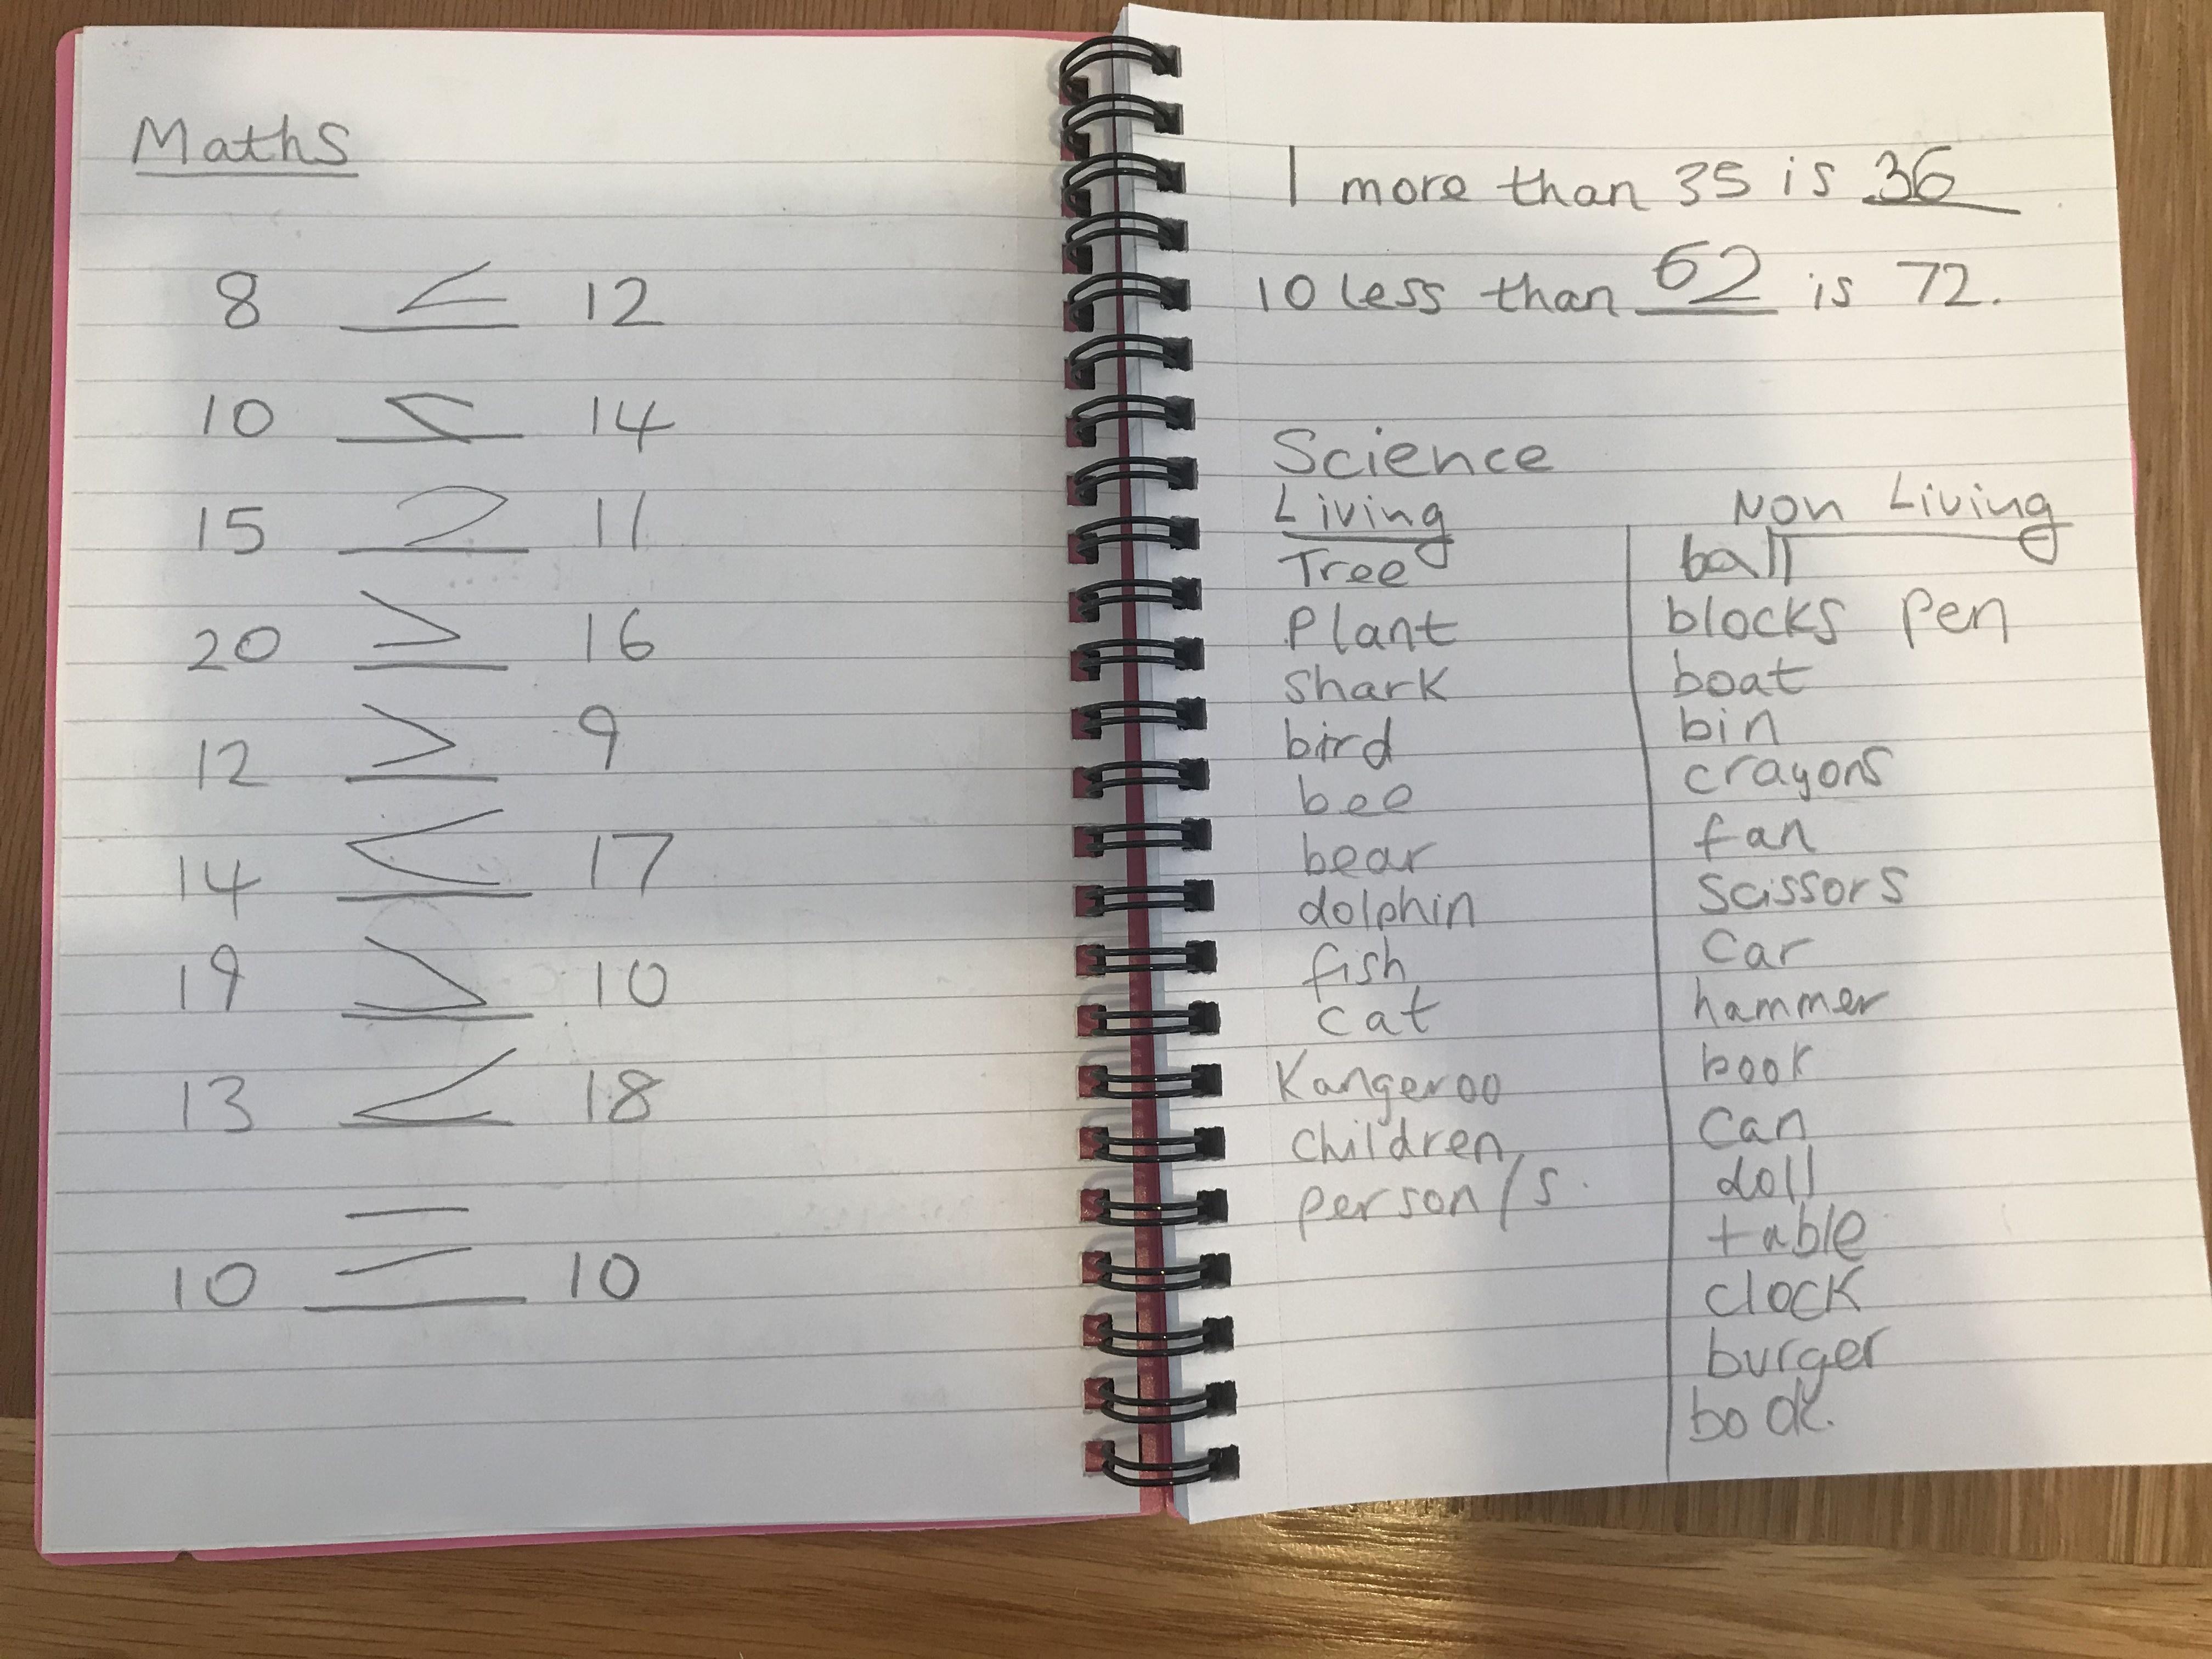 Maths
8 < 12
10 < 14
15 > 11
20 > 16
12 > 9
14 < 17
19 > 10
13 < 18
10 = 10
1 more than 35 is 36
10 less than 62 is 72.
Science
Living
Tree
Plant
shark
bird
bee
bear
dolphin
fish
cat
Kangeroo
children
person/s.
Non Living
ball
blocks pen
boat
bin
crayons
fan
scissors
car
hammer
book
can
doll
table
clock
burger
book.